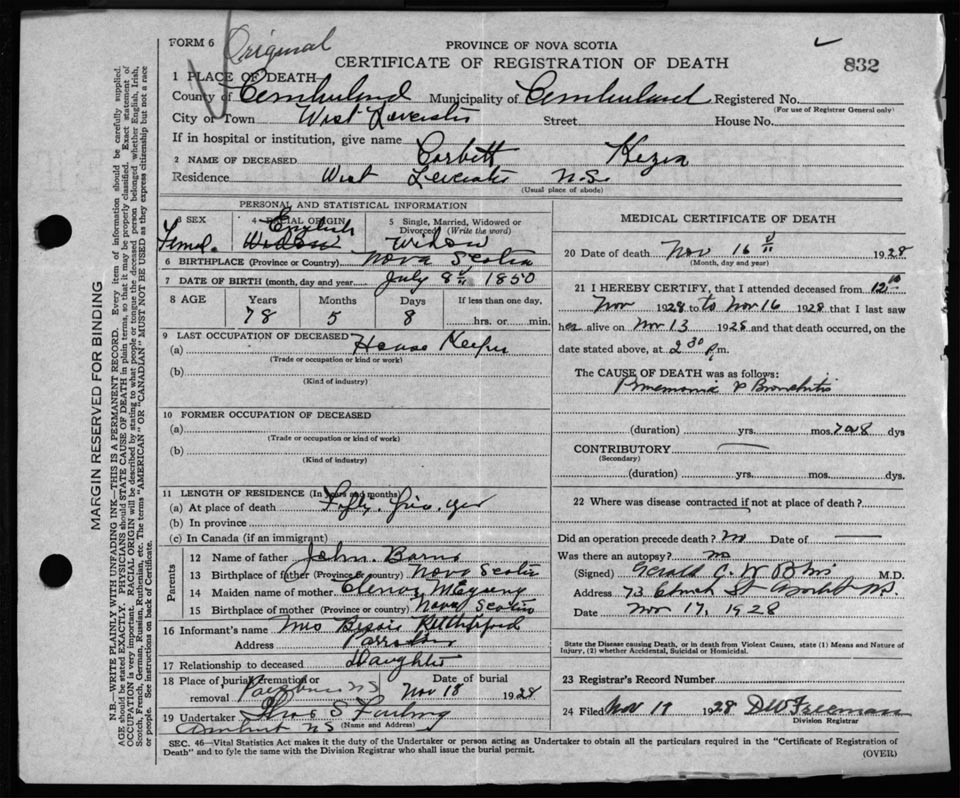 FORM 6 Original
PROVINCE OF NOVA SCOTIA
CERTIFICATE OF REGISTRATION OF DEATH
832
1 PLACE OF DEATH
County of Cumberland Municipality of Cumberland Registered No.
(For use of Registrar General only)
City or Town West Leicester Street House No.
If in hospital or institution, give name
2 NAME OF DECEASED Corbett Kezia
Residence West Leicester N.S.
(Usual place of abode)
PERSONAL AND STATISTICAL INFORMATION
3 SEX 4 RACIAL ORIGIN 5 Single, Married, Widowed or Divorced (Write the word)
Femal. English Widow Widow
6 BIRTHPLACE (Province or Country) Nova Scotia
7 DATE OF BIRTH (month, day and year) July 8 1850
8 AGE Years Months Days If less than one day,
78 5 8 hrs. or min.
9 LAST OCCUPATION OF DECEASED House Keeper
(a)
(Trade or occupation or kind or work)
(b)
(Kind of industry)
10 FORMER OCCUPATION OF DECEASED
(a)
(Trade or occupation or kind of work)
(b)
(Kind of industry)
11 LENGTH OF RESIDENCE (In years and months)
(a) At place of death Fifty
(b) In province
(c) In Canada (if an immigrant)
Parents
12 Name of father John Barns
13 Birthplace of father (Province or country) Nova Scotia
14 Maiden name of mother
15 Birthplace of mother (Province or country) Nova Scotia
16 Informant's name Mrs Bessie
Address Parrsboro
17 Relationship to deceased Daughter
18 Place of burial cremation or removal N S Date of burial Nov 18 1928
19 Undertaker S
(Name and Address)
Amherst N S
MEDICAL CERTIFICATE OF DEATH
20 Date of death Nov 16 1928
(Month, day and year)
21 I HEREBY CERTIFY, that I attended deceased from 12
Nov 1928 to Nov 16 1928 that I last saw
her alive on Nov 13 1928 and that death occurred, on the
date stated above, at 2 30 p.m.
The CAUSE OF DEATH was as follows:
Pneumonia & Bronchitis
(duration) yrs. mos. 7 or 8 dys
CONTRIBUTORY
(Secondary)
(duration) yrs. mos. dys.
22 Where was disease contracted if not at place of death?
Did an operation precede death? No Date of
Was there an autopsy? no
(Signed) Gerald C. W. M.D.
Address 73 Church St Amherst N.S.
Date Nov 17, 1928
State the Disease causing Death, or in death from Violent Causes, state (1) Means and Nature of
Injury, (2) whether Accidental, Suicidal or Homicidal.
23 Registrar's Record Number
24 Filed Nov 19 1928 D W Freeman
Division Registrar
SEC. 46—Vital Statistics Act makes it the duty of the Undertaker or person acting as Undertaker to obtain all the particulars required in the "Certificate of Registration of
Death" and to fyle the same with the Division Registrar who shall issue the burial permit.
(OVER)
MARGIN RESERVED FOR BINDING
N.B.—WRITE PLAINLY WITH UNFADING INK—THIS IS A PERMANENT RECORD. Every item of information should be carefully supplied.
AGE should be stated EXACTLY. PHYSICIANS should STATE CAUSE OF DEATH in plain terms, so that it may be properly classified. Exact statement of
OCCUPATION is very important. RACIAL ORIGIN will be described by stating to what people or tongue the deceased person belonged whether English, Irish,
Scotch, French, German, Russian, Ruthenian, etc. The terms "AMERICAN" OR "CANADIAN" MUST NOT BE USED as they express citizenship but not a race
or people. See instructions on back of Certificate.